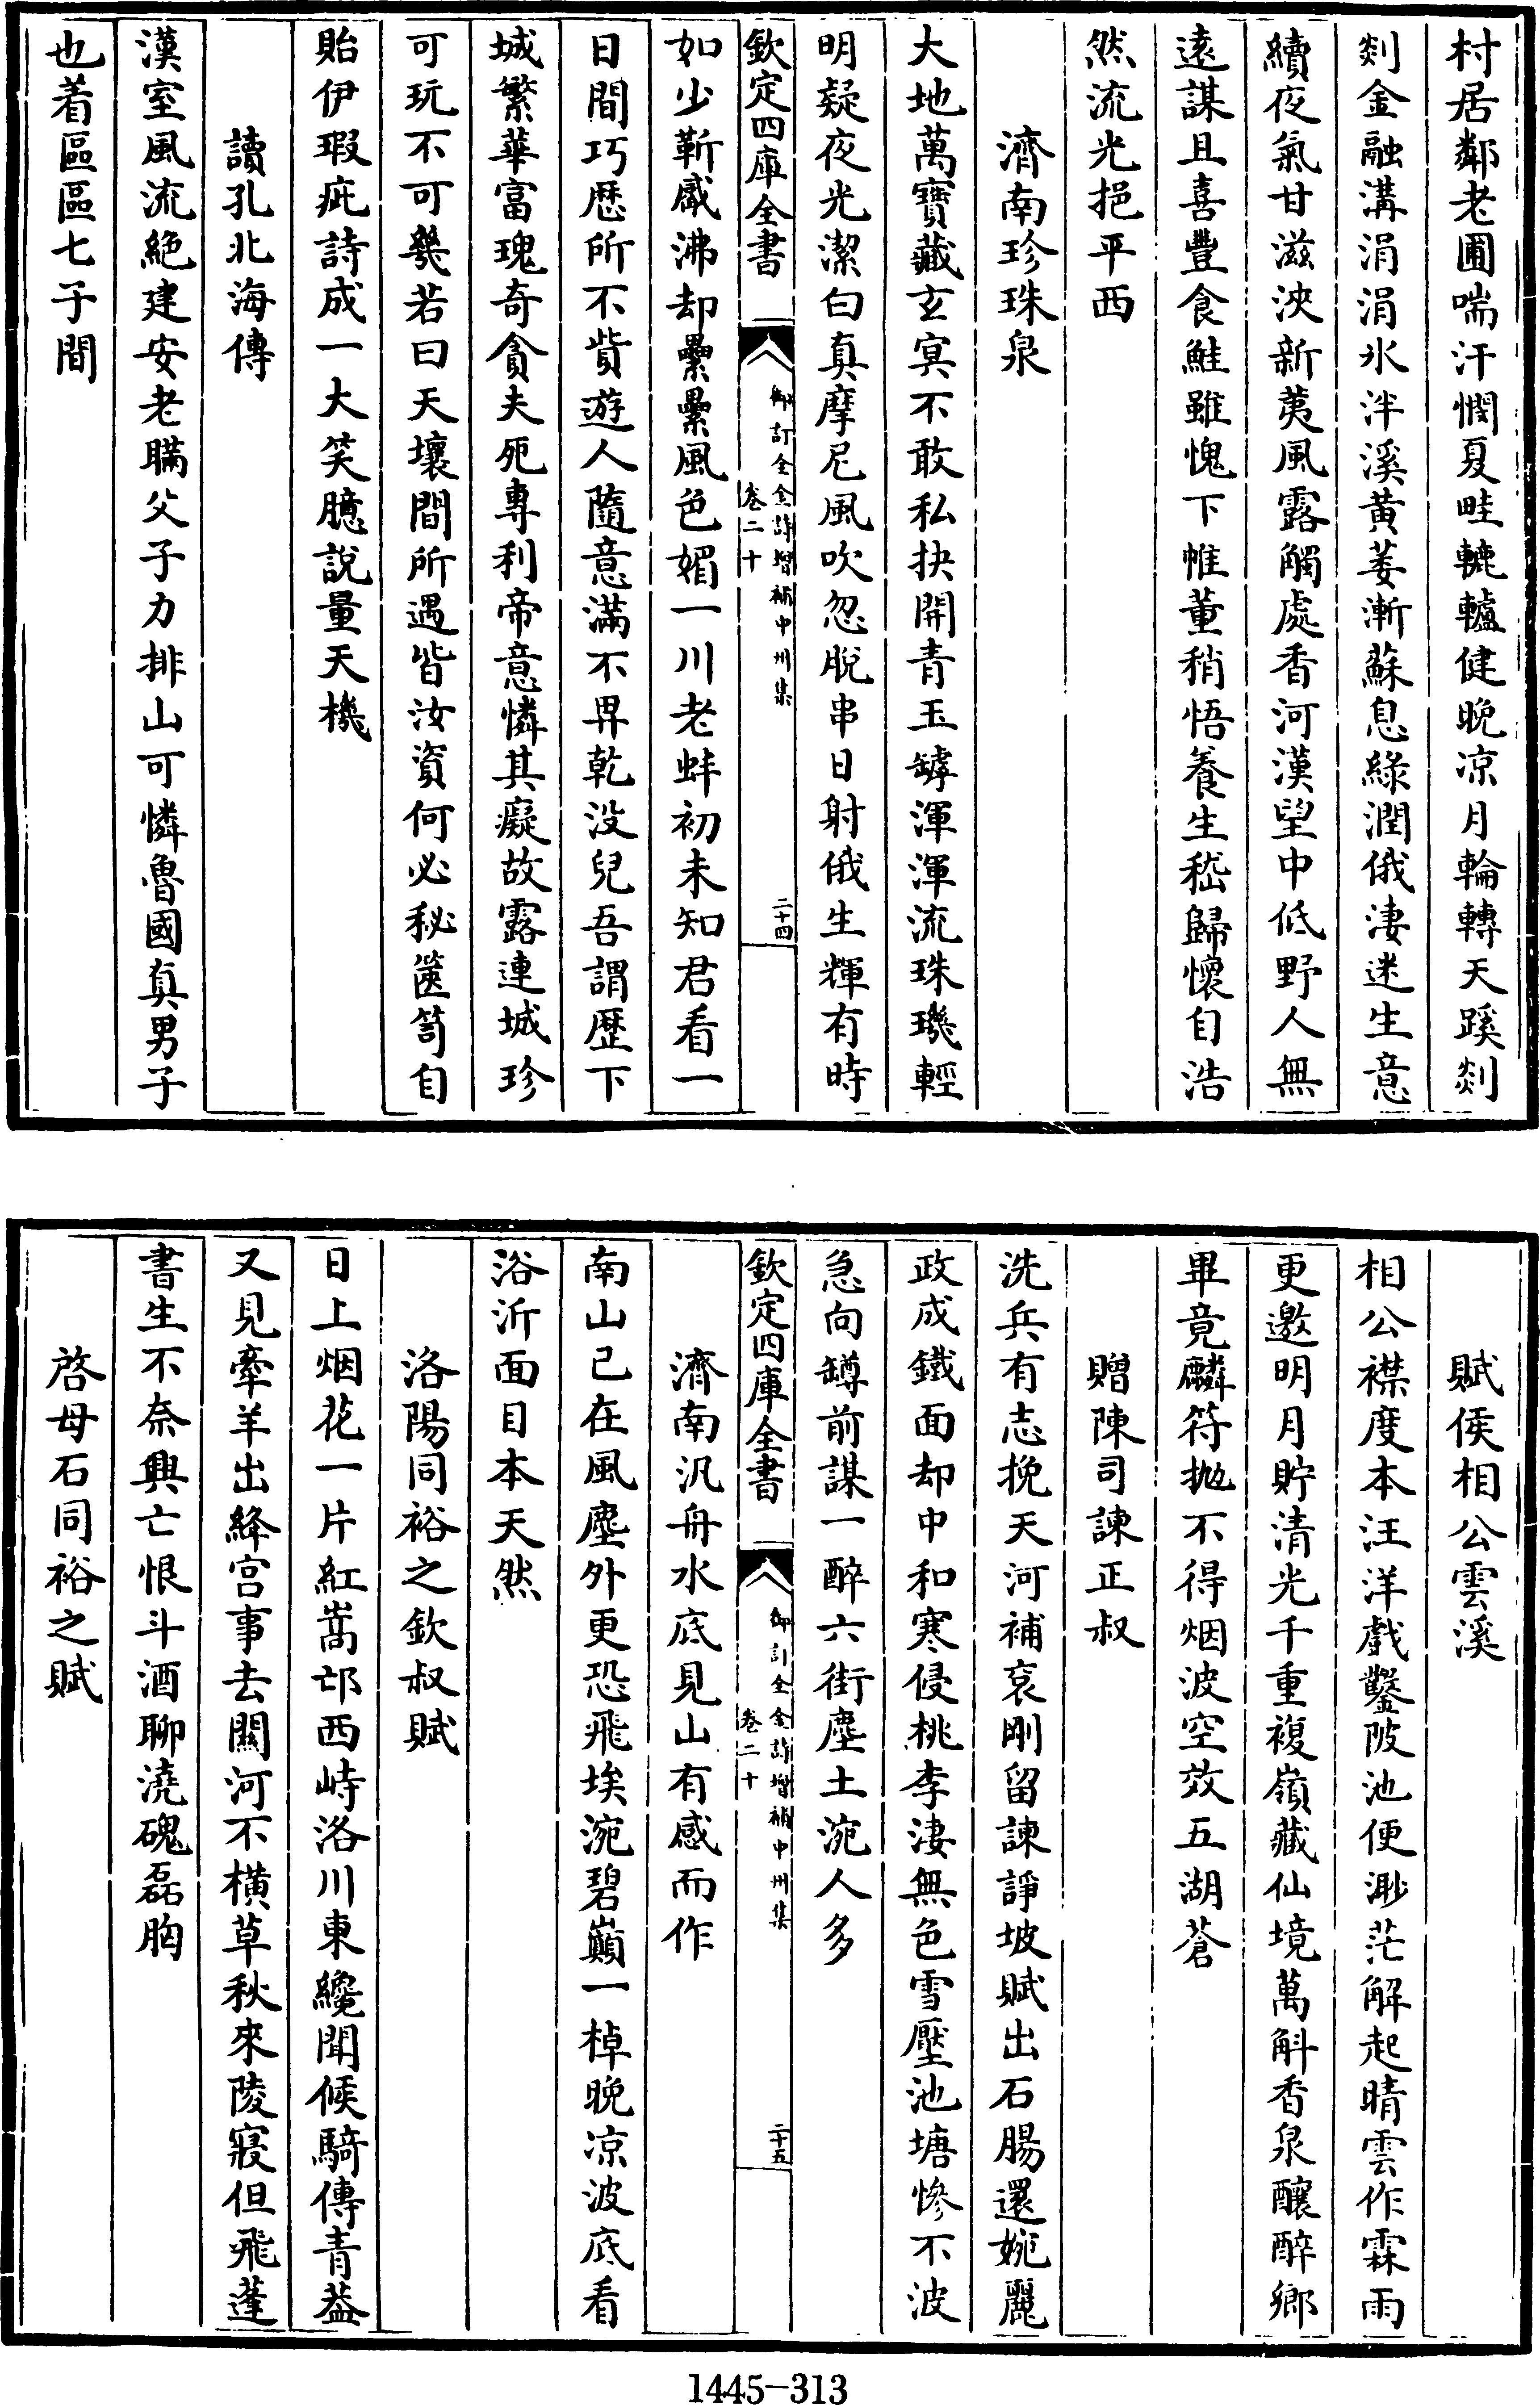 村居鄰老圃喘汗憫夏畦轆轤健晚凉月輪轉天蹊剡
剡金融溝涓涓氷泮溪黄萎漸蘇息綠潤俄淒迷生意
續夜氣甘滋浹新荑風露觸處香河漢望中低野人無
遠謀且喜豐食鮭雖愧下帷董稍悟養生嵇歸懷自浩
然流光挹平西
濟南珍珠泉
大地萬寶藏玄冥不敢私抉開青玉罅渾渾流珠璣輕
明疑夜光潔白真摩尼風吹忽脱串日射俄生輝有時
欽定四庫全書
御訂全金詩增補中州集
卷二十
二十四
如少靳感沸却纍纍風色媚一川老蚌初未知君看一
日間巧歷所不貲遊人隨意滿不畀乾没兒吾謂歷下
城繁華富瑰奇貪夫死專利帝意憐其癡故露連城珍
可玩不可㡬若曰天壤間所遇皆汝資何必秘篋笥自
貽伊瑕疵詩成一大笑臆說量天機
讀孔北海傳
漢室風流絶建安老瞞父子力排山可憐魯國真男子
也着區區七子間
賦侯相公雲溪
相公襟度本汪洋戲鑿陂池便渺茫解起晴雲作霖雨
更邀明月貯清光千重複嶺藏仙境萬斛香泉釀醉鄉
畢竟麟符抛不得烟波空效五湖蒼
贈陳司諫正叔
洗兵有志挽天河補衮剛留諫諍坡賦出石腸還婉麗
政成鐵面却中和寒侵桃李淒無色雪壓池塘慘不波
急向罇前謀一醉六街塵土涴人多
欽定四庫全書
御訂全金詩增補中州集
卷二十
二十五
濟南汎舟水底見山有感而作
南山已在風塵外更恐飛埃涴碧巔一棹晚凉波底看
浴沂面目本天然
洛陽同裕之欽叔賦
日上烟花一片紅嵩邙西峙洛川東纔聞候騎傳青蓋
又見牽羊出絳宫事去關河不橫草秋來陵寢但飛蓬
書生不奈興亡恨斗酒聊澆磈磊胸
啓母石同裕之賦
1445-313